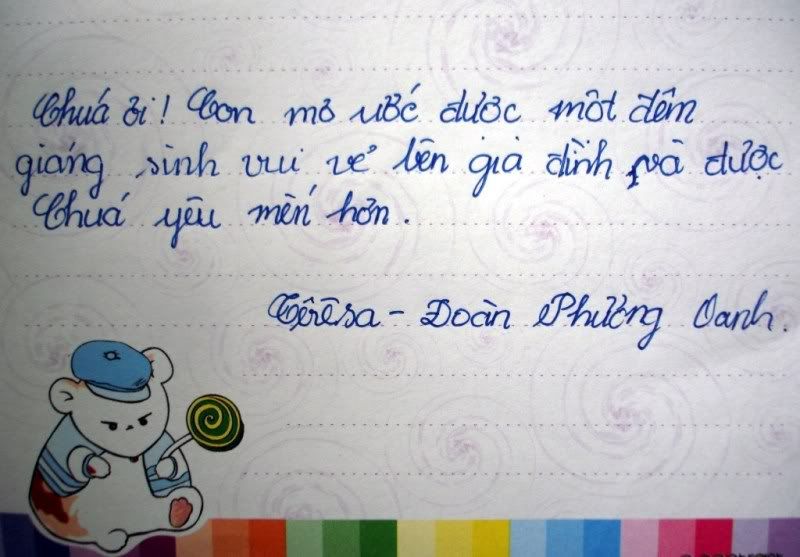 Chuá ơi! Con mơ ước được một đêm
giáng sinh vui vẻ bên gia đình và được
Chuá yêu mến hơn.
Têrêsa - Đoàn Phương Oanh.